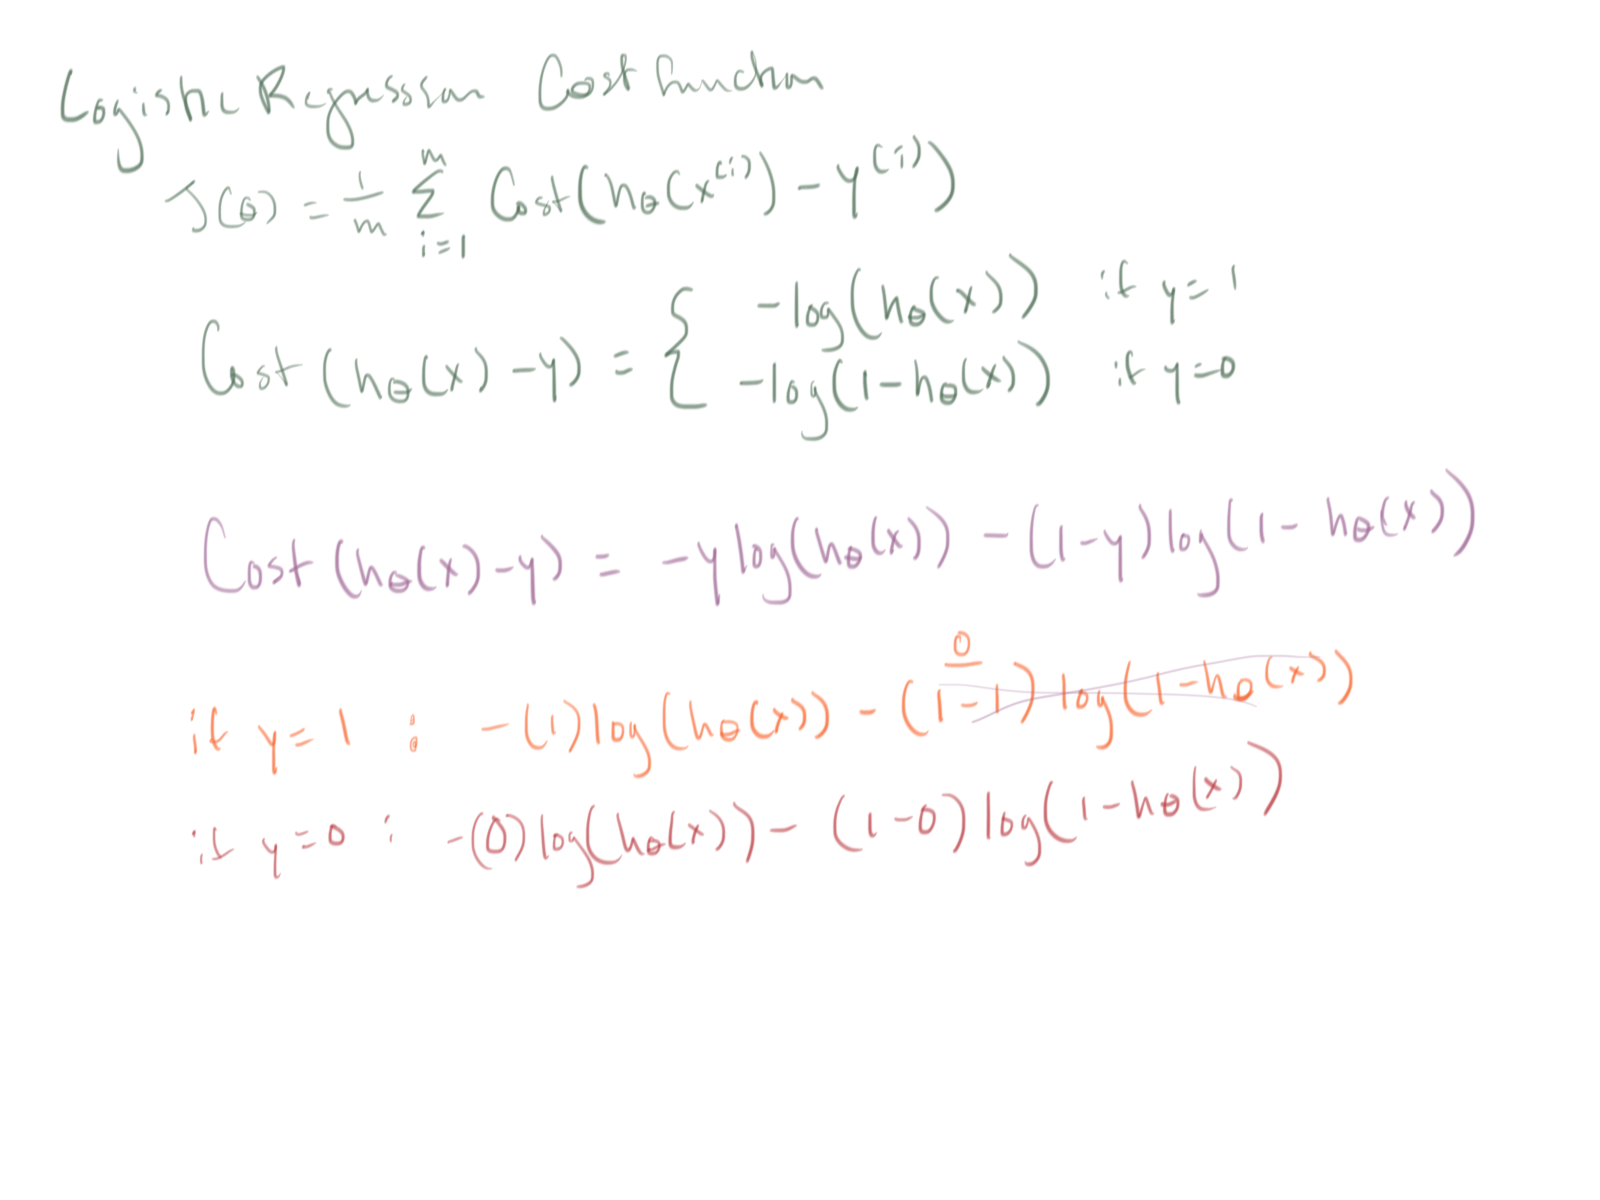 Logistic Regression Cost Function
J(θ) = 1/m Σ_{i=1}^{m} Cost(hθ(x^(i)) - y^(i))
Cost(hθ(x) - y) = { -log(hθ(x)) if y = 1
-log(1-hθ(x)) if y=0
Cost(hθ(x)-y) = -y log(hθ(x)) - (1-y) log(1- hθ(x))
0
if y = 1 : -(1) log(hθ(x)) - (1-1) log(1-hθ(x))
if y=0 : -(0) log(hθ(x)) - (1-0) log(1-hθ(x))